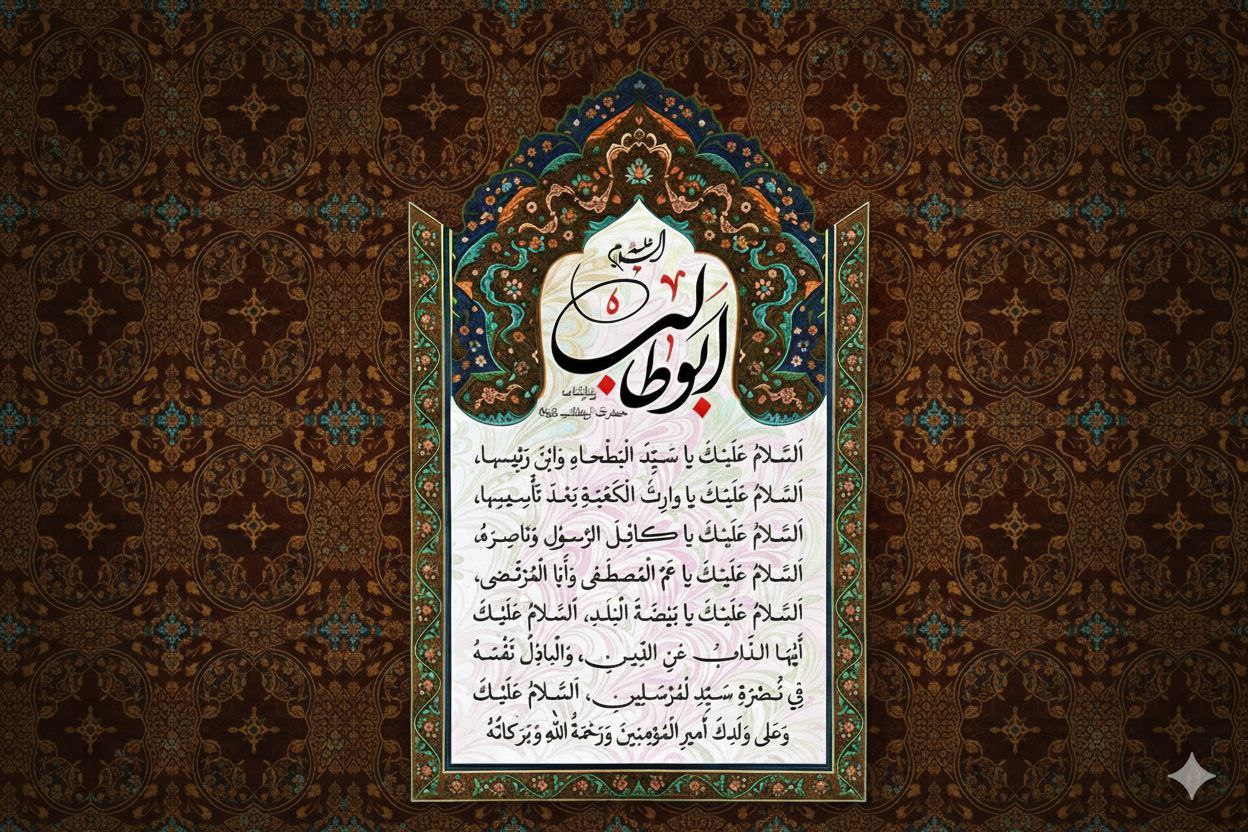 ابوطالب
اَلسَّلامُ عَلَيْكَ يا سَيِّدَ الْبَطْحاءِ وَابْنَ رَئيسِها،
اَلسَّلامُ عَلَيْكَ يا وارِثَ الْكَعْبَةِ بَعْدَ تَأْسِيسِها،
اَلسَّلامُ عَلَيْكَ يا كافِلَ الرَّسُولِ وَناصِرَهُ،
اَلسَّلامُ عَلَيْكَ يا عَمَّ الْمُصطَفى وَأَبَا الْمُرْتَضى،
اَلسَّلامُ عَلَيْكَ يا بَيْضَةَ الْبَلَدِ، اَلسَّلامُ عَلَيْكَ
أَيُّهَا الذَّابُّ عَنِ الدِّينِ، وَالْباذِلُ نَفْسَهُ
فِي نُصْرَةِ سَيِّدِ لْمُرْسَلِينَ، اَلسَّلامُ عَلَيْكَ
وَعَلى وَلَدِكَ أَميرِ الْمُؤْمِنِينَ وَرَحْمَةُ اللهِ وَبَرَكاتُهُ